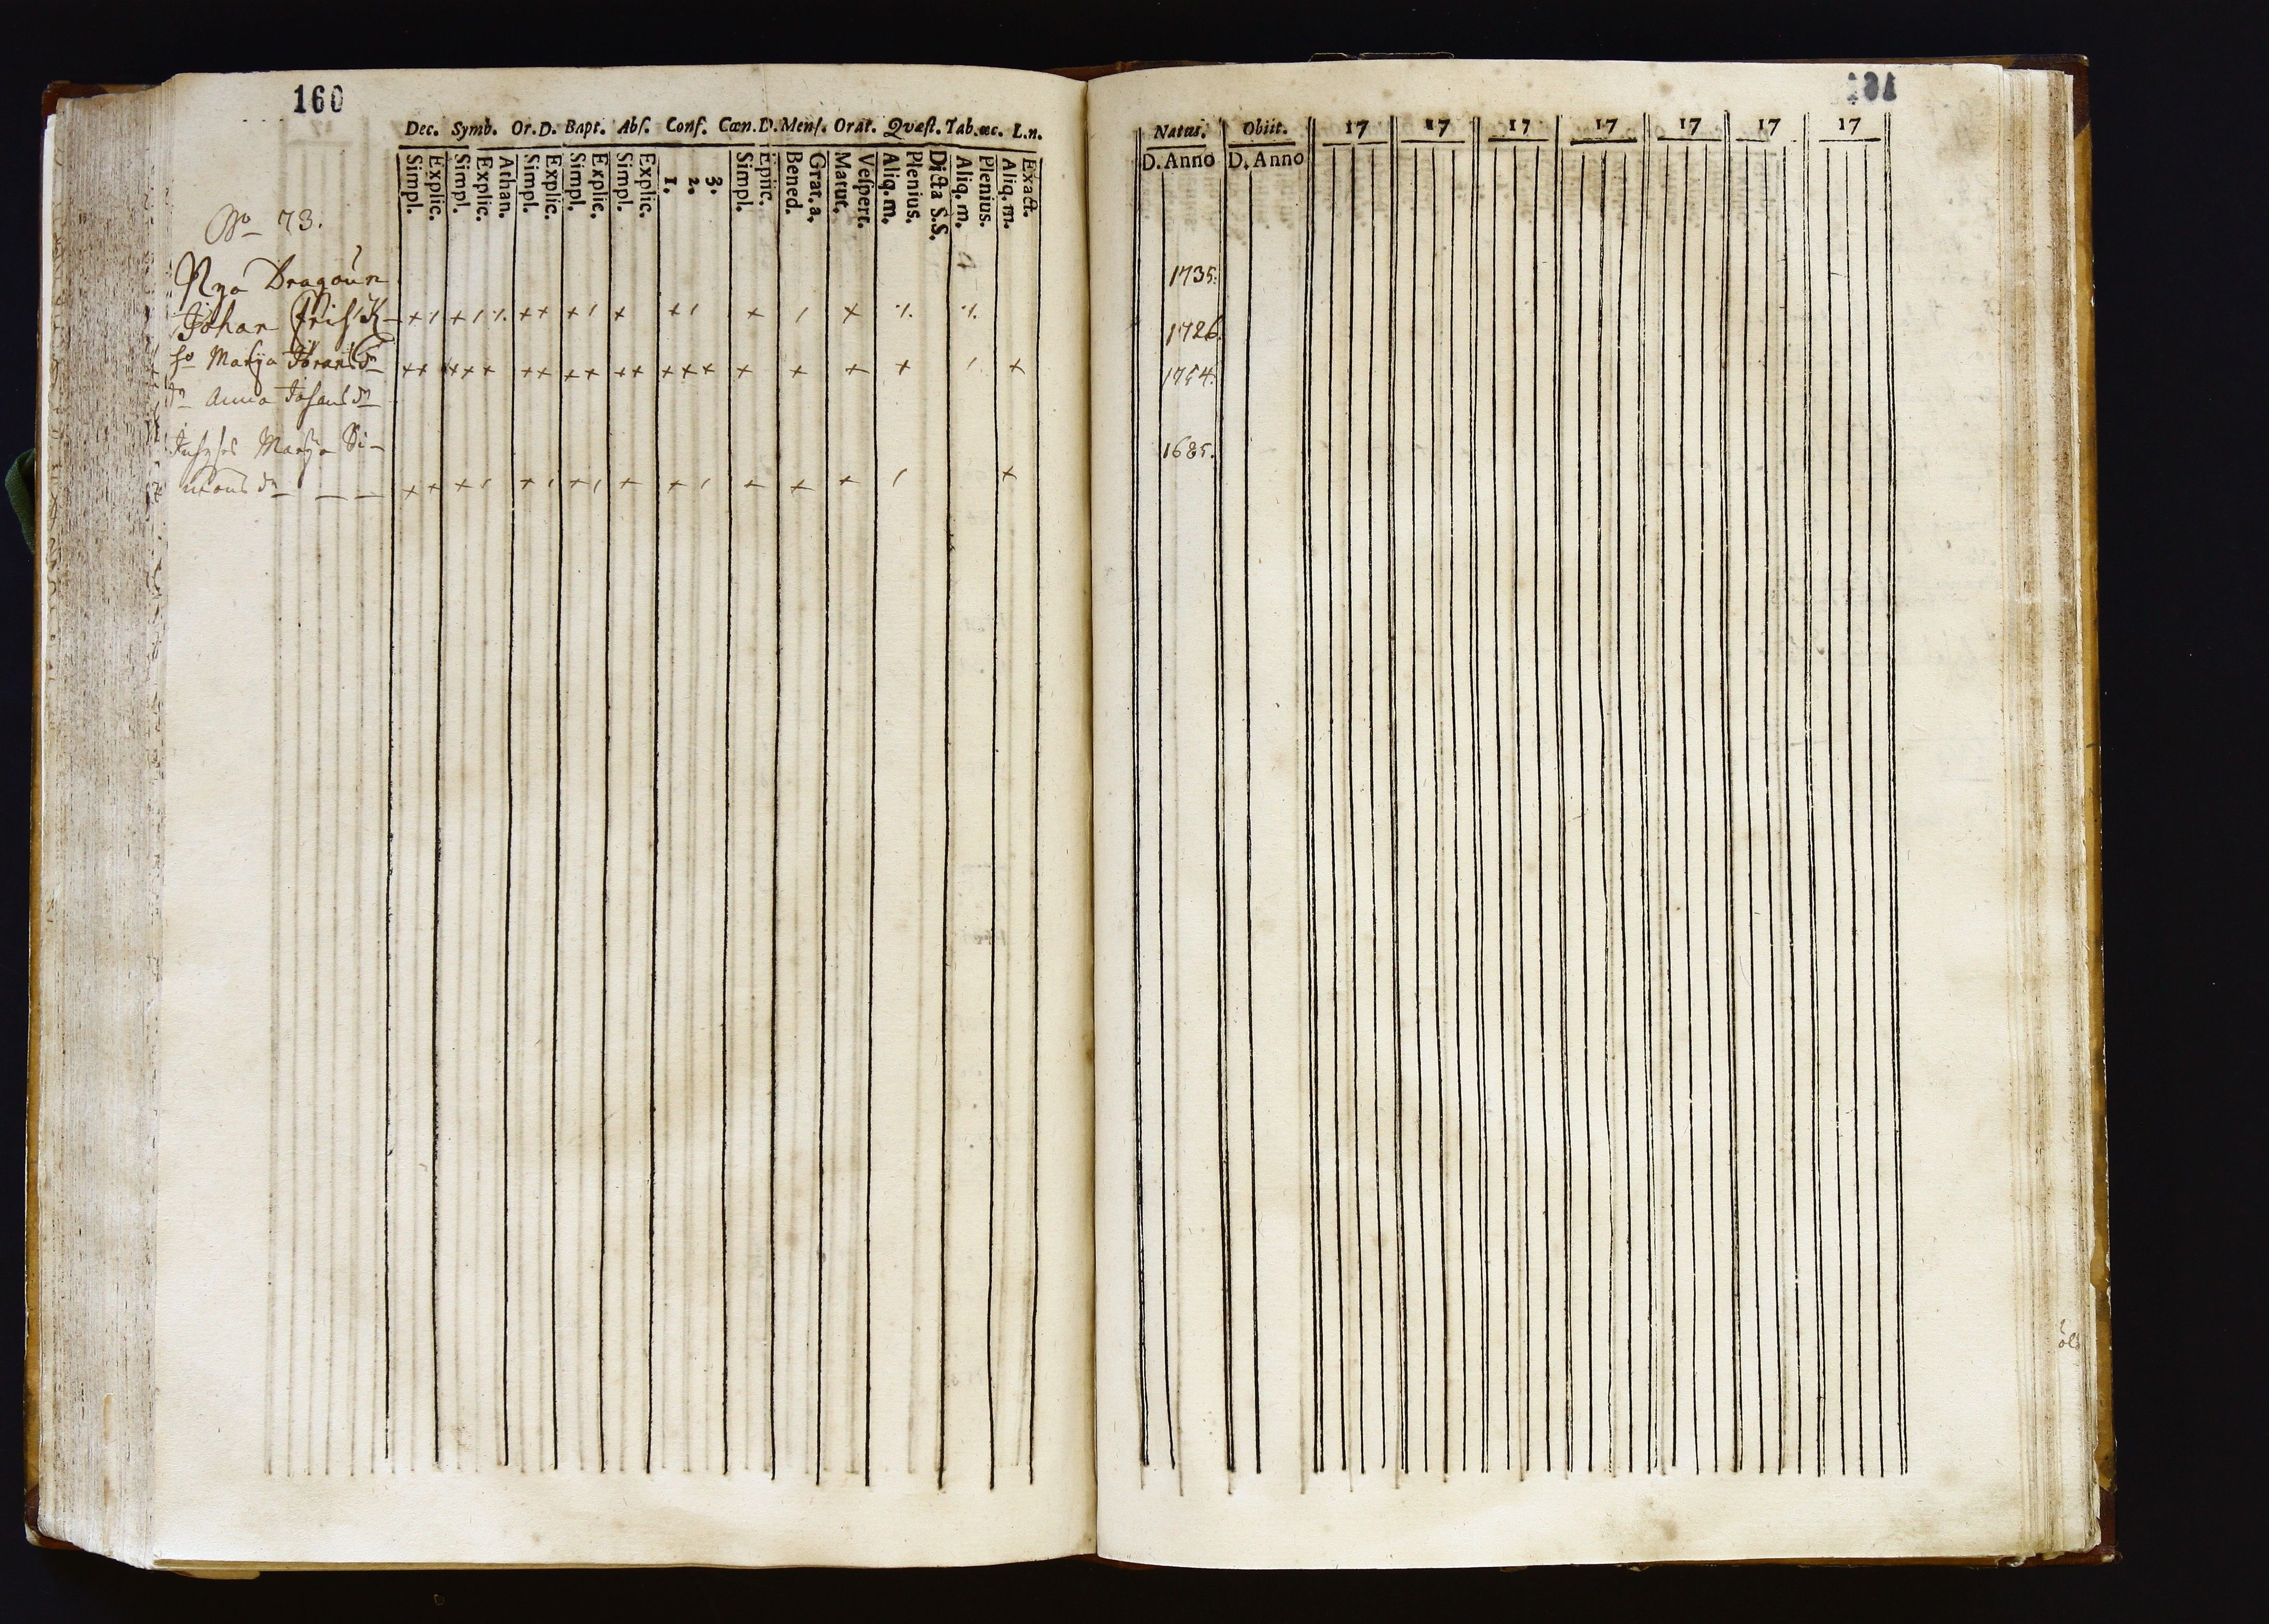 160
Dec. Symb. Or.D. Bapt. Abſ. Conf. Cœn.D. Menſ. Orat. Quæſt. Tab.œc. L.n.
Simpl. Explic. Simpl. Explic. Athan. Simpl. Explic. Simpl. Explic. Simpl. Explic. 1. 2. 3. Simpl. Eplic. Bened. Grat. a. Matut. Veſpert. Aliq. m. Plenius. Dicta S.S. Aliq. m. Plenius. Aliq. m. Exact.
No 73.
Nya Dragoun
Johan Frisk
Marja
Anna Johans dr
Marja Si-
mons dr
161
Natus. Obiit. 17 17 17 17 17 17 17
D. Anno D. Anno
1735.
1726.
1754.
1685.